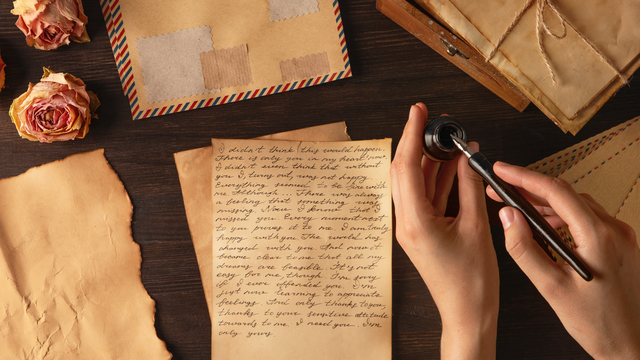 I didn't think this would happen.
There is only you in my heart now.
I didn't even think that without
you I, turns out, was not happy.
Everything seemed to be fine with
me. Although... There was always
a feeling that something was
missing. Now I know that I
missed you. Every moment next
to you proves it to me. I am truly
happy with you. The world has
changed with you. And now it
became clear to me that all my
dreams are feasible. It's not
easy for me though. I'm sorry
if I ever offended you. I'm
just now learning to appreciate
feelings. And only thanks to you,
thanks to your sensitive attitude
towards to me. I need you. I'm
only yours.